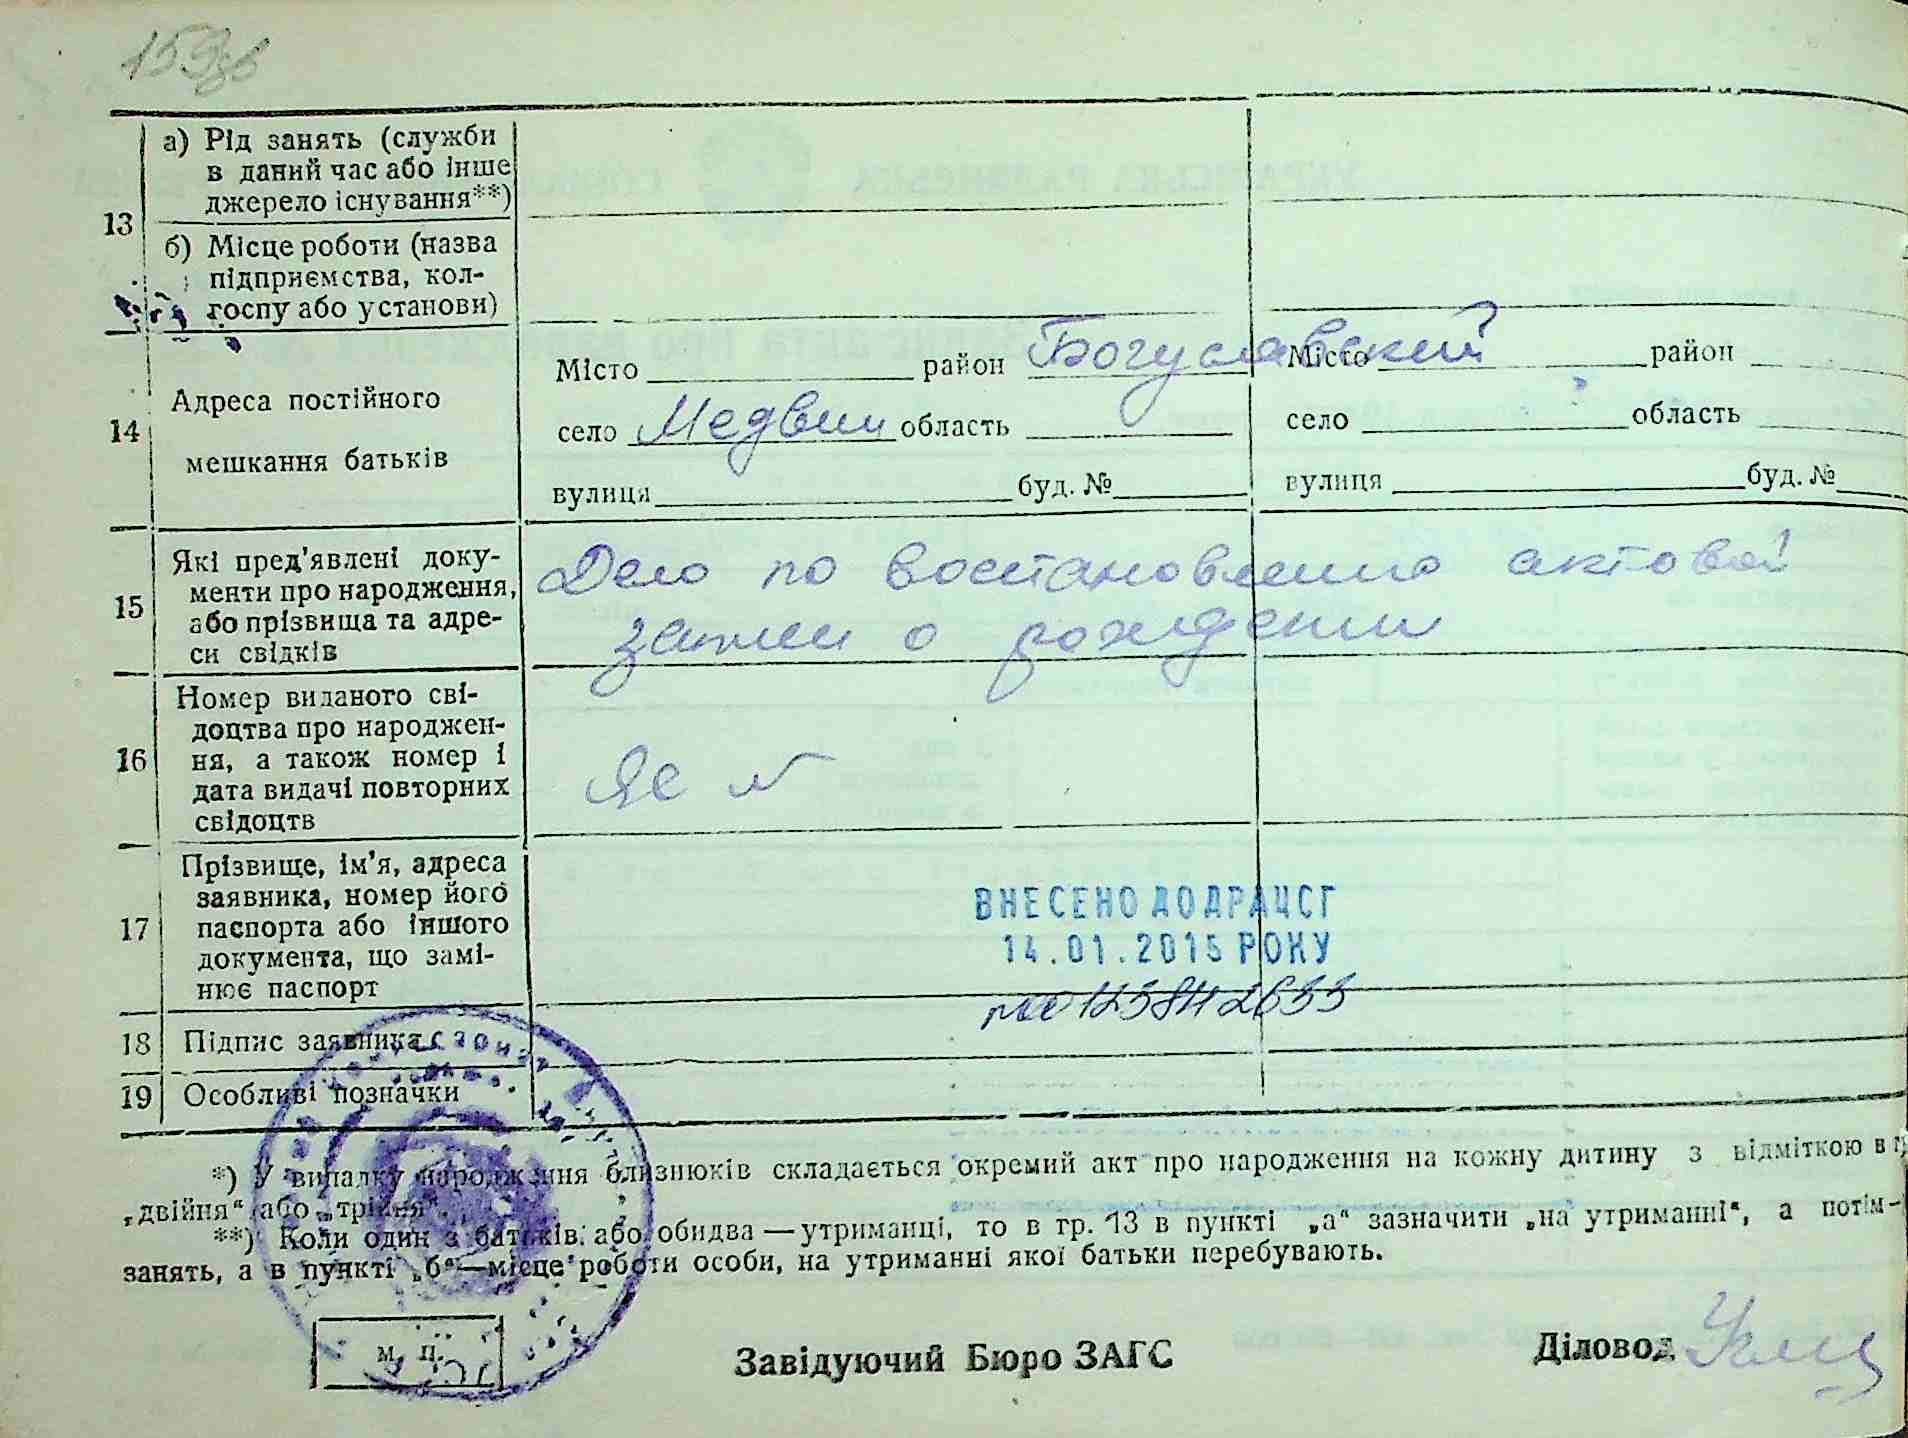 159зв
13
а) Рід занять (служби
в даний час або інше
джерело існування**)
б) Місце роботи (назва
підприємства, кол-
госпу або установи)
14
Адреса постійного
мешкання батьків
Місто район Богуславский Місто район
село Медвин область село область
вулиця буд. № вулиця буд. №
15
Які пред'явлені доку-
менти про народження,
або прізвища та адре-
си свідків
Дело по восстановлению актовой
записи о рождении
16
Номер виданого сві-
доцтва про народжен-
ня, а також номер і
дата видачі повторних
свідоцтв
ЯС №
17
Прізвище, ім'я, адреса
заявника, номер його
паспорта або іншого
документа, що замі-
нює паспорт
ВНЕСЕНО ДО ДРАЦСГ
14.01.2015 РОКУ
18 Підпис заявника
19 Особливі позначки
*) У випадку народження близнюків складається окремий акт про народження на кожну дитину з відміткою в
„двійня“ або „трійня“.
**) Коли один з батьків або обидва — утриманці, то в гр. 13 в пункті „а“ зазначити „на утриманні“, а потім
занять, а в пункті „б“ — місце роботи особи, на утриманні якої батьки перебувають.
м. п.
Завідуючий Бюро ЗАГС
Діловод